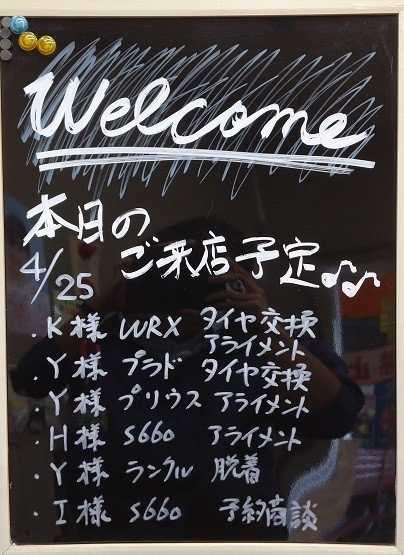 Welcome
本日の
ご来店予定♪♪
4/25
・K様 WRX タイヤ交換
アライメント
・Y様 プラド タイヤ交換
・Y様 プリウス アライメント
・H様 S660 アライメント
・Y様 ランクル 脱着
・I様 S660 予約商談